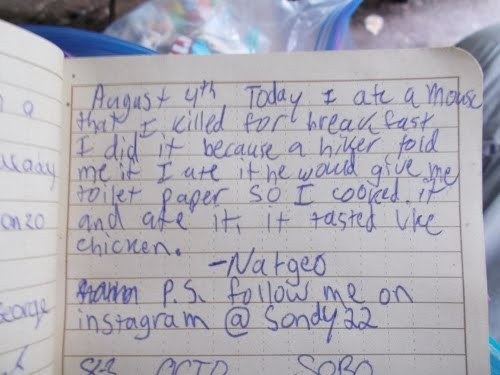 August 4th Today I ate a mouse
that I killed for breakfast
I did it because a hiker told
me if I ate it he would give me
toilet paper so I cooked it
and ate it, it tasted like
chicken.
-Natgeo
P.S. follow me on
instagram @ Sondy22
SOBO